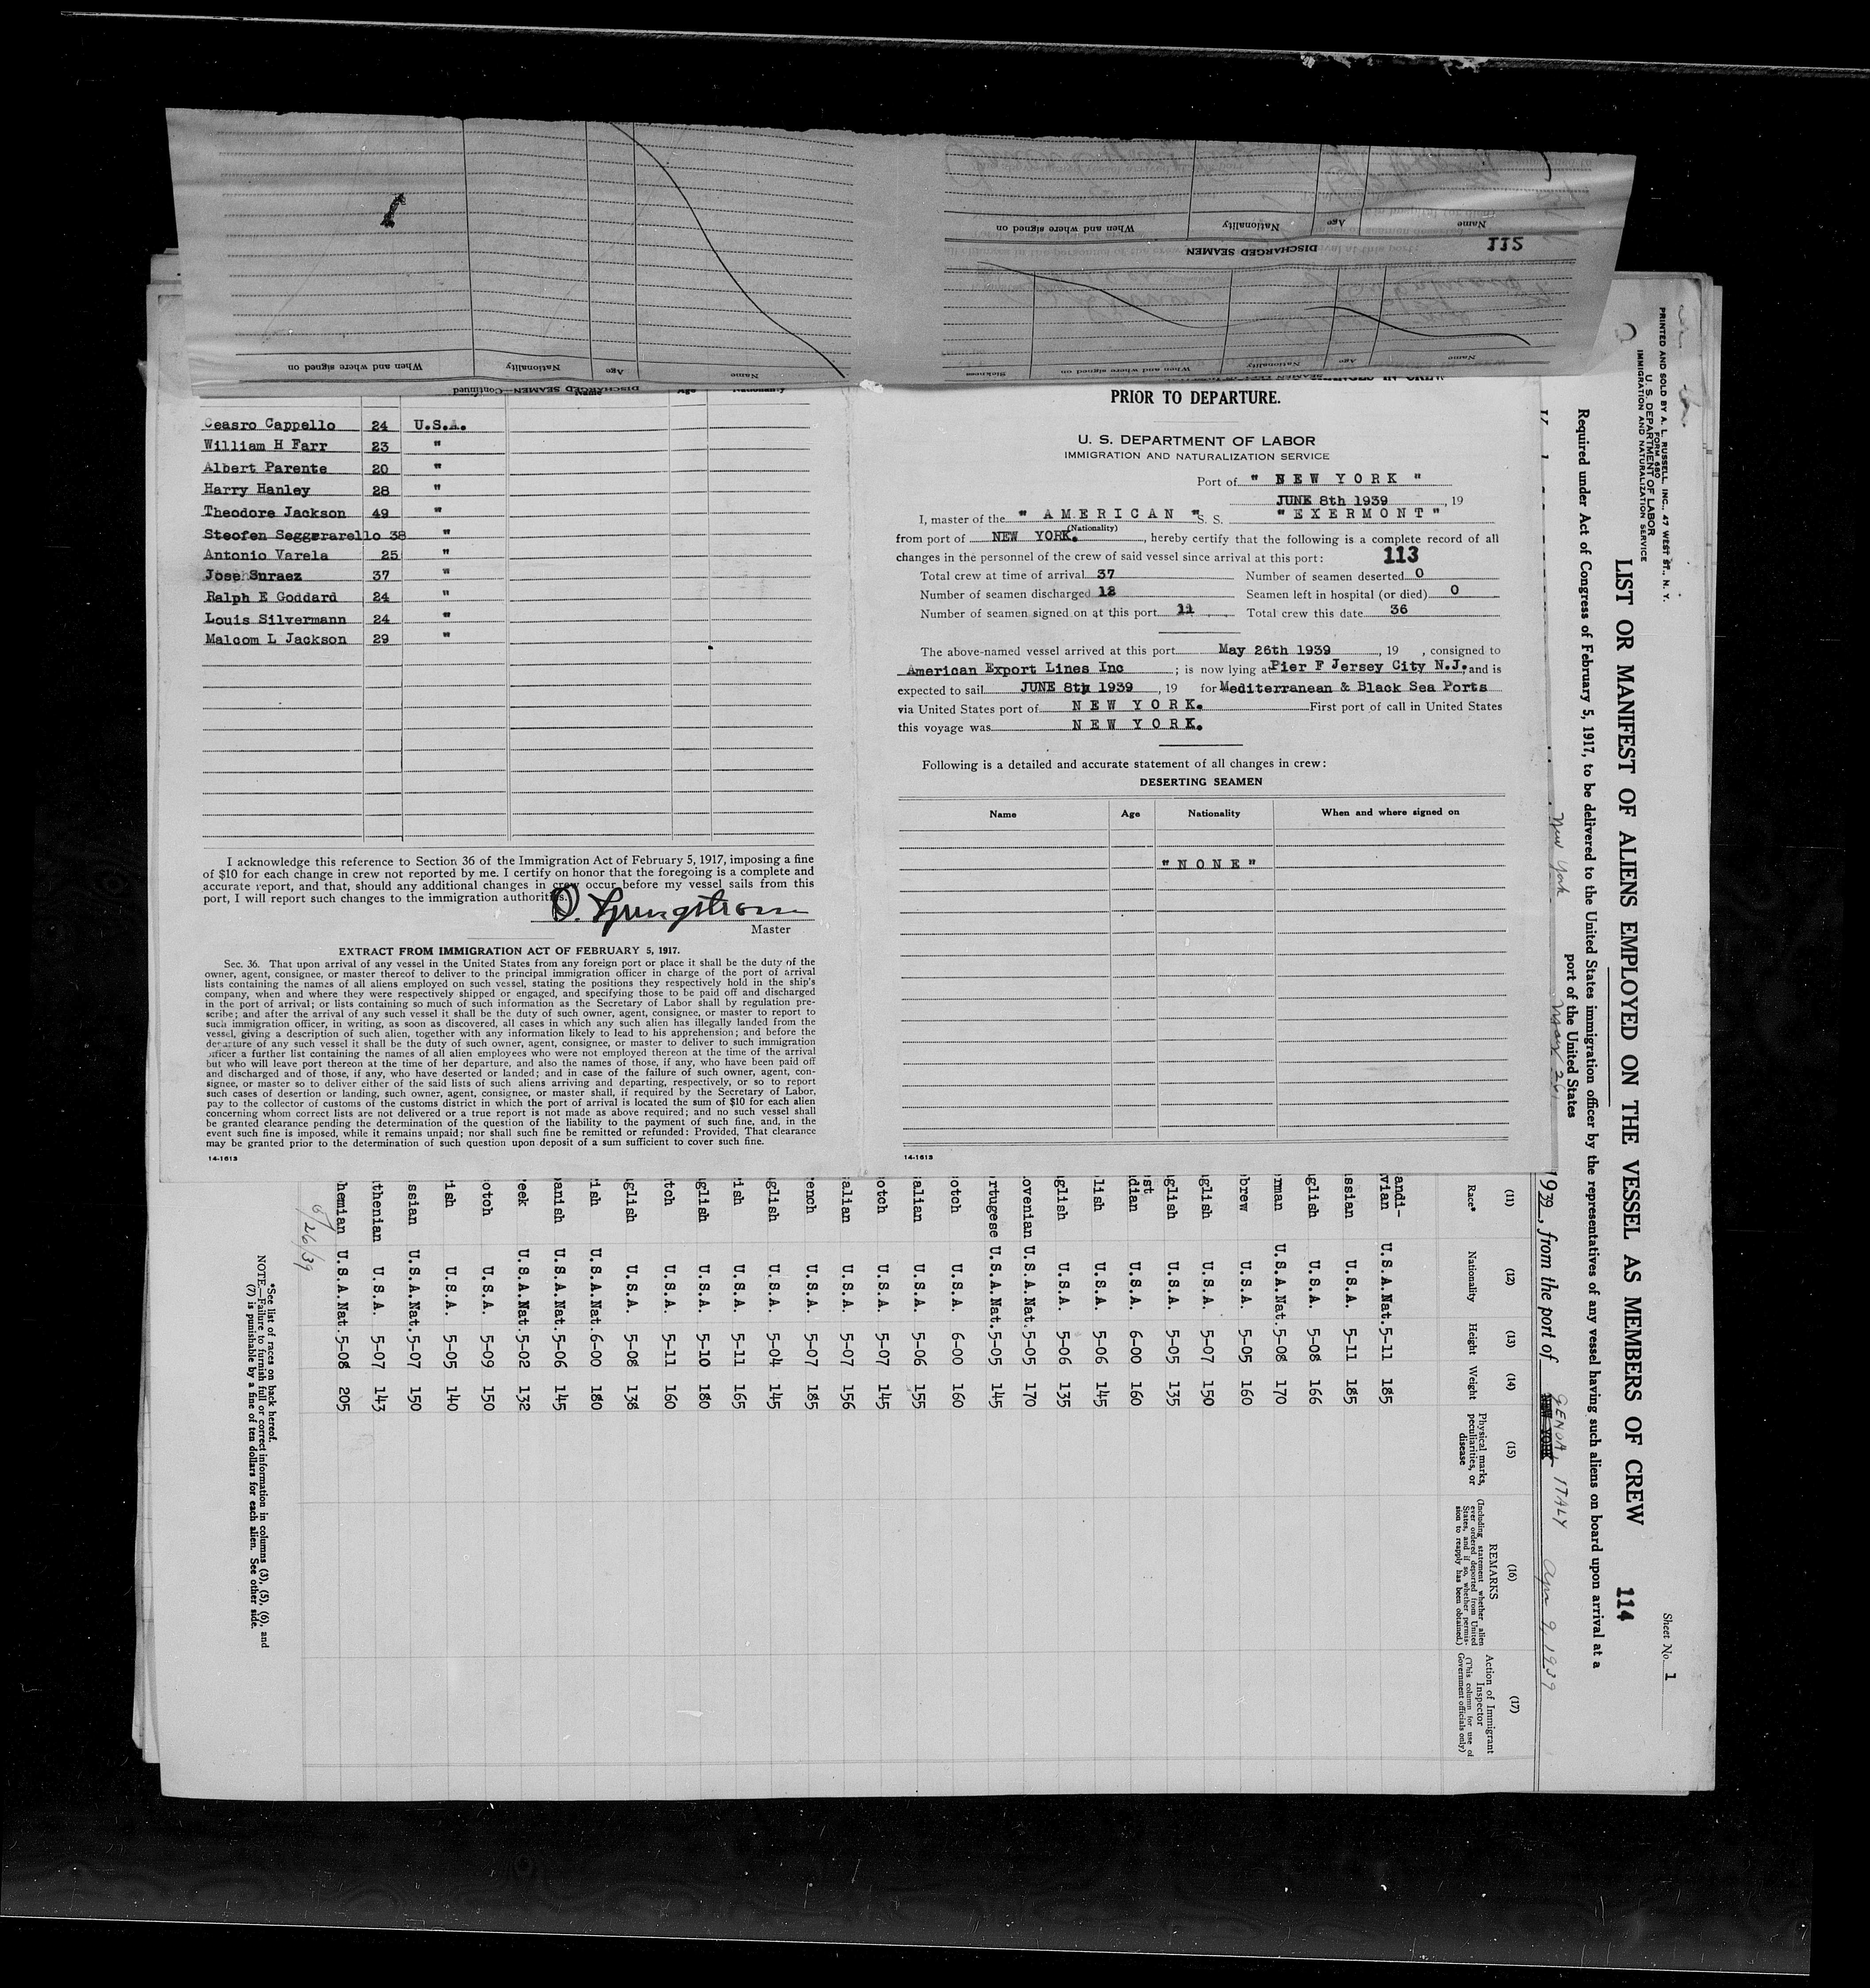 When and where signed on Nationality Age Name
DISCHARGED SEAMEN—Continued
Sickness When and where signed on Nationality Age Name
DISCHARGED SEAMEN
112
When and where signed on Nationality Age Name
Name Age Nationality
Ceasro Cappello 24 U.S.A.
William H Farr 23 "
Albert Parente 20 "
Harry Hanley 28 "
Theodore Jackson 49 "
Steofen Seggerarello 38 "
Antonio Varela 25 "
Jose Suraez 37 "
Ralph E Goddard 24 "
Louis Silvermann 24 "
Malcom L Jackson 29 "
I acknowledge this reference to Section 36 of the Immigration Act of February 5, 1917, imposing a fine
of $10 for each change in crew not reported by me. I certify on honor that the foregoing is a complete and
accurate report, and that, should any additional changes in crew occur before my vessel sails from this
port, I will report such changes to the immigration authorities.
Master
EXTRACT FROM IMMIGRATION ACT OF FEBRUARY 5, 1917.
Sec. 36. That upon arrival of any vessel in the United States from any foreign port or place it shall be the duty of the
owner, agent, consignee, or master thereof to deliver to the principal immigration officer in charge of the port of arrival
lists containing the names of all aliens employed on such vessel, stating the positions they respectively hold in the ship's
company, when and where they were respectively shipped or engaged, and specifying those to be paid off and discharged
in the port of arrival; or lists containing so much of such information as the Secretary of Labor shall by regulation pre-
scribe; and after the arrival of any such vessel it shall be the duty of such owner, agent, consignee, or master to report to
such immigration officer, in writing, as soon as discovered, all cases in which any such alien has illegally landed from the
vessel, giving a description of such alien, together with any information likely to lead to his apprehension; and before the
departure of any such vessel it shall be the duty of such owner, agent, consignee, or master to deliver to such immigration
officer a further list containing the names of all alien employees who were not employed thereon at the time of the arrival
but who will leave port thereon at the time of her departure, and also the names of those, if any, who have been paid off
and discharged and of those, if any, who have deserted or landed; and in case of the failure of such owner, agent, con-
signee, or master so to deliver either of the said lists of such aliens arriving and departing, respectively, or so to report
such cases of desertion or landing, such owner, agent, consignee, or master shall, if required by the Secretary of Labor,
pay to the collector of customs of the customs district in which the port of arrival is located the sum of $10 for each alien
concerning whom correct lists are not delivered or a true report is not made as above required; and no such vessel shall
be granted clearance pending the determination of the question of the liability to the payment of such fine, and, in the
event such fine is imposed, while it remains unpaid; nor shall such fine be remitted or refunded: Provided, That clearance
may be granted prior to the determination of such question upon deposit of a sum sufficient to cover such fine.
14-1613
PRIOR TO DEPARTURE.
U. S. DEPARTMENT OF LABOR
IMMIGRATION AND NATURALIZATION SERVICE
Port of " NEW YORK "
JUNE 8th 1939, 19
I, master of the " AMERICAN " S. S. "EXERMONT"
(Nationality)
from port of NEW YORK., hereby certify that the following is a complete record of all
changes in the personnel of the crew of said vessel since arrival at this port: 113
Total crew at time of arrival 37 Number of seamen deserted 0
Number of seamen discharged 12 Seamen left in hospital (or died) 0
Number of seamen signed on at this port 11 Total crew this date 36
The above-named vessel arrived at this port May 26th 1939, 19 , consigned to
American Export Lines Inc ; is now lying at Pier F Jersey City N.J. and is
expected to sail JUNE 8th 1939, 19 for Mediterranean & Black Sea Ports
via United States port of NEW YORK. First port of call in United States
this voyage was NEW YORK.
Following is a detailed and accurate statement of all changes in crew:
DESERTING SEAMEN
Name Age Nationality When and where signed on
"NONE"
14-1613
PRINTED AND SOLD BY A. L. RUSSELL, INC., 47 WEST ST., N. Y.
FORM 680
U. S. DEPARTMENT OF LABOR
IMMIGRATION AND NATURALIZATION SERVICE
Sheet No. 1
LIST OR MANIFEST OF ALIENS EMPLOYED ON THE VESSEL AS MEMBERS OF CREW 114
Required under Act of Congress of February 5, 1917, to be delivered to the United States immigration officer by the representatives of any vessel having such aliens on board upon arrival at a
port of the United States
New York May 26 1939, from the port of NEW YORK GENOA, ITALY Apr 9, 1939
(11) (12) (13) (14) (15) (16) (17)
Race* Nationality Height Weight Physical marks, peculiarities, or disease
REMARKS (Including statement whether alien ever ordered deported from United States, and if so, whether permission to reapply has been obtained.)
Action of Immigrant Inspector (This column for use of Government officials only)
andi-
vian U.S.A.Nat. 5-11 185
ssian U.S.A. 5-11 185
glish U.S.A. 5-08 166
rman U.S.A.Nat. 5-08 170
brew U.S.A. 5-05 160
glish U.S.A. 5-07 150
glish U.S.A. 5-05 135
st
dian U.S.A. 6-00 160
lish U.S.A. 5-06 145
glish U.S.A. 5-06 135
ovenian U.S.A.Nat. 5-05 170
rtugese U.S.A.Nat. 5-05 145
otch U.S.A. 6-00 160
alian U.S.A. 5-06 155
otch U.S.A. 5-07 145
alian U.S.A. 5-07 156
ench U.S.A. 5-07 185
glish U.S.A. 5-04 145
ish U.S.A. 5-11 165
glish U.S.A. 5-10 180
tch U.S.A. 5-11 160
glish U.S.A. 5-08 138
ish U.S.A.Nat. 6-00 180
anish U.S.A.Nat. 5-06 145
eek U.S.A.Nat. 5-02 132
otch U.S.A. 5-09 150
ish U.S.A. 5-05 140
ssian U.S.A.Nat. 5-07 150
thenian U.S.A. 5-07 143
hemian U.S.A.Nat. 5-08 205
5/26/39
*See list of races on back hereof.
NOTE.—Failure to furnish full or correct information in columns (3), (5), (6), and
(7) is punishable by a fine of ten dollars for each alien. See other side.